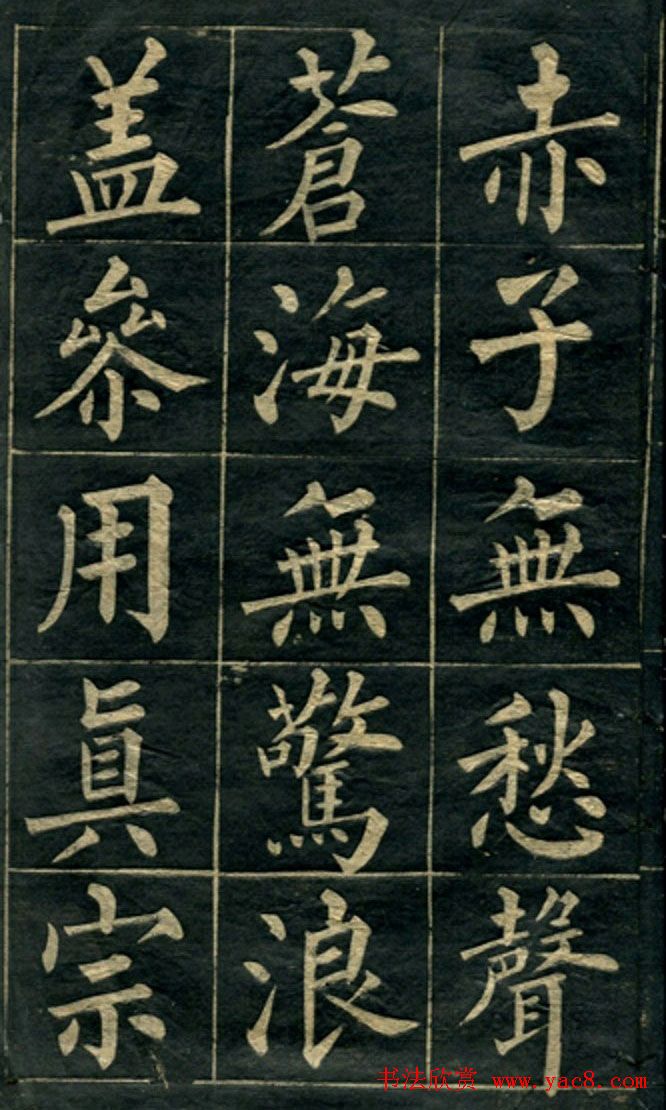 赤子無愁聲
蒼海無驚浪
盖叅用眞宗
书法欣赏 www.yac8.com